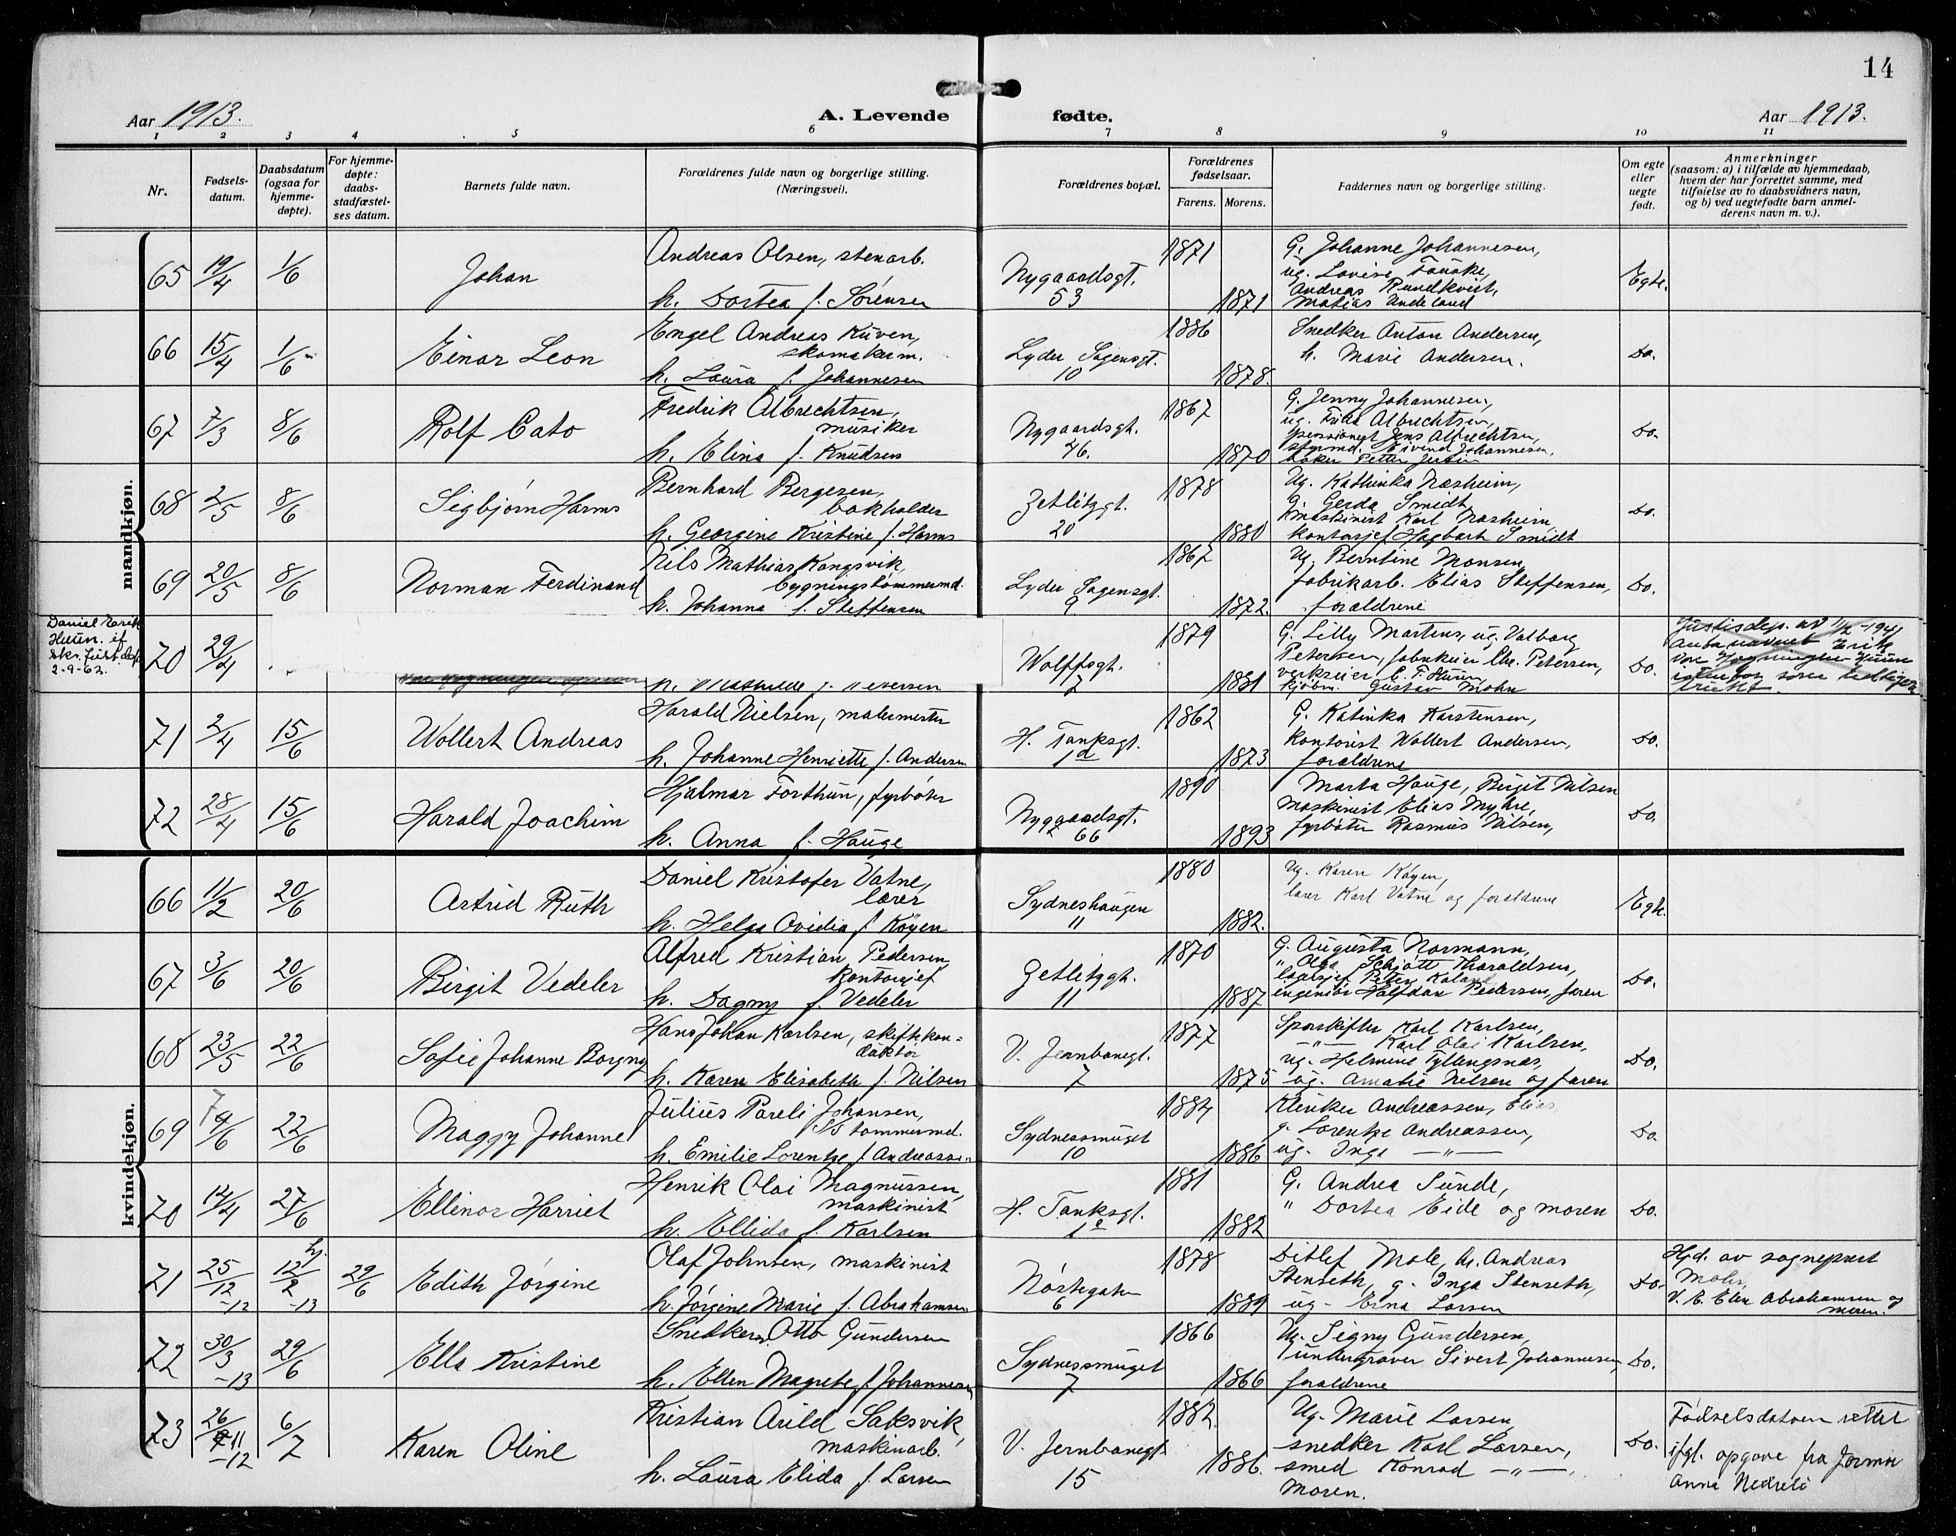 14
Aar 1913.
A. Levende fødte.
Aar 1913.
1 2 3 4 5 6 7 8 9 10 11
Nr.
Fødsels-
datum.
Daabsdatum
(ogsaa for
hjemme-
døpte).
For hjemme-
døpte:
daabs-
stadfæstel-
ses datum.
Barnets fulde navn.
Forældrenes fulde navn og borgerlige stilling.
(Næringsvei).
Forældrenes bopæl.
Forældrenes
fødselsaar.
Farens. Morens.
Faddernes navn og borgerlige stilling.
Om egte
eller
uegte
født.
Anmerkninger
(saasom: a) i tilfælde av hjemmedaab,
hvem der har forrettet samme, med
tilføielse av to daabsvidners navn,
og b) ved uegtefødte barn anmel-
derens navn m. v.).
mandkjøn.
65 19/4 1/6 Johan
Andreas Olsen, stenarb.
h. Dortea f. Sørensen
Nygaardsgt.
53
1871
1871
G. Johanne Johannesen,
ug. Lovise Fauske,
Andreas Rundkvist,
Matias Undeland
Egte.
66 15/4 1/6 Einar Leon
Engel Andreas Kuven,
skomakerm.
h. Laura f. Johannesen
Lyder Sagensgt.
10
1886
1878.
Snedker Anton Andersen,
h. Marie Andersen.
Do.
67 7/3 8/6 Rolf Cato
Fredrik Albrechtsen,
musiker
h. Elina f. Knudsen
Nygaardsgt.
46.
1867
1870
G. Jenny Johannesen,
ug. Frida Albrechtsen,
pensionert Jens Albrechtsen,
styrmd. Eivend Johannesen,
baker Petter
Do.
68 2/5 8/6 Sigbjørn Harms
Bernhard Bergesen,
bokholder
h. Georgine Kristine f. Harms
Zetlitzgt.
20
1878
1880
Ug. Kathinka Næsheim,
g. Gerda Smidt
maskinist Karl Næsheim
kontorsjef Hagbart Smidt
Do.
69 20/5 8/6 Norman Ferdinand
Nils Mathias Kongsvik,
bygningstømmermd.
h. Johanna f. Steffensen
Lyder Sagensgt.
9
1867
1872.
Ug. Berntine Monsen,
fabrikarb. Elias Steffensen,
forældrene
Do.
Daniel Erik
Huun. if
skr. Just.dep.
2-9-63.
70 29/4
h. Mathilde f. Petersen
Wolffsgt.
7
1879
1881
G. Lilly Martens, ug. Valborg
Petersen, fabrikeier Chr. Petersen,
verkseier C. F. Huun,
kjøbm. Gustav Mohn
Do.
Justisdep. av 1941
navnet Erik
71 2/4 15/6 Wollert Andreas
Harald Nielsen, malermester
h. Johanne Henriette f. Andersen
H. Tanksgt.
1d
1862
1873
G. Katinka Karstensen,
kontorist Wollert Andersen,
forældrene
Do.
72 28/4 15/6 Harald Joachim
Hjalmar Forthun, fyrbøter
h. Anna f. Hauge
Nygaardsgt.
66
1890
1893
Marta Hauge, Birgit Nilsen
maskinist Elias Myhre,
fyrbøter Rasmus Nilsen,
Do.
kvindekjøn.
66 11/2 20/6 Astrid Ruth
Daniel Kristofer Vatne,
lærer
h. Helga Ovidia f. Køyen
Sydneshaugen
11
1880
1882.
Ug. Karen Køyen,
lærer Karl Vatne og forældrene
Egte.
67 3/6 20/6 Birgit Vedeler
Alfred Kristian Pedersen,
kontorsjef
h. Dagny f. Vedeler
Zetlitzgt.
11
1870
1887
G. Augusta Normann,
" Olga Schjøtt Tharaldsen,
Petter Kaland
ingeniør Halfdan Pedersen, faren
Do.
68 23/5 22/6 Sofie Johanne Borgny
Hans Johan Karlsen, skiftekon=
duktør
h. Karen Elisabeth f. Nilsen
V. Jernbanegt.
7
1877
1875
Sporskifter Karl Karlsen,
—"— Karl Olai Karlsen,
ug. Helmine Tyllengsnæs,
ug. Amalie Nilsen og faren
Do.
69 4/6 22/6 Maggy Johanne
Julius Pareli Johansen,
tømmermd.
h. Emilie Lorentze f. Andreassen
Sydnessmuget
10
1884
1886
Klinker Andreassen, Elias
g. Lorentze Andreassen,
ug. Inga —"—
Do.
70 12/4 27/6 Ellinor Harriet
Henrik Olai Magnussen,
maskinist
h. Ellida f. Karlsen
H. Tanksgt.
1e
1881
1882
G. Andrea Sunde,
" Dortea Eide og moren
Do.
71 25/12 -12 hj. 12/2 -13 29/6 Edith Jørgine
Olaf Johnsen, maskinist
h. Jørgine Marie f. Abrahamsen
Nøstegaten
6
1878
1889
Ditlef Mole, Andreas
Stenseth, g. Inga Stenseth,
ug. Erna Larsen
Do.
Hjd. av sogneprest
Mohr,
V. E. Elen Abrahamsen og
moren.
72 30/3 -13 29/6 Ella Kristine
Snedker Otto Gundersen
h. Ellen Magrete f. Johannesen
Sydnessmuget
7
1866
1866
Ug. Signy Gundersen,
Sivert Johannesen,
forældrene
Do.
73 26/11 -12 6/7 Karen Oline
Kristian Arild Saksvik,
maskinarb.
h. Laura Elida f. Larsen
V. Jernbanegt.
15
1882.
1886.
Ug. Marie Larsen
snedker Karl Larsen,
smed Konrad —"—,
moren.
Do.
Fødselsdatoen rettet
ifgl. opgave fra Jormor
Anna Nedreli